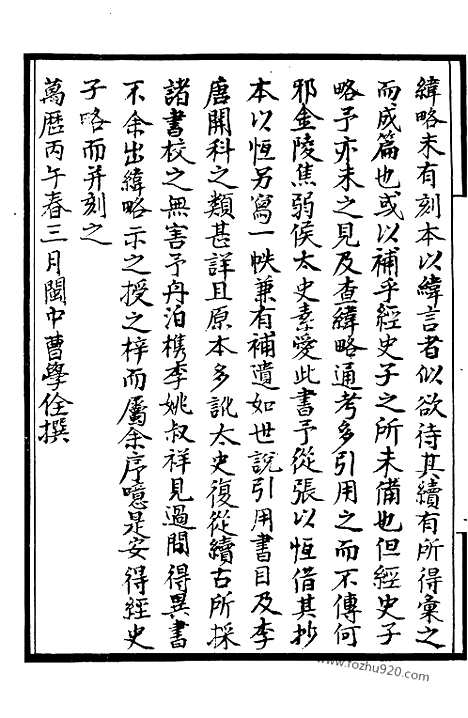 緯略未有刻本以緯言者似欲待其續有所得彙之
而成篇也或以補乎經史子之所未備也但經史子
略予亦未之見及查緯略通考多引用之而不傳何
邪金陵焦弱侯太史素愛此書予從張以恆借其抄
本以恆另寫一帙兼有補遺如世說引用書目及李
唐開科之類甚詳且原本多訛太史復從續古所採
諸書校之無害予舟泊槜李姚叔祥見過間得異書
不余出緯略示之授之梓而屬余序噫是安得經史
子略而并刻之
萬歷丙午春三月閩中曹學佺撰
www.fozhu920.com